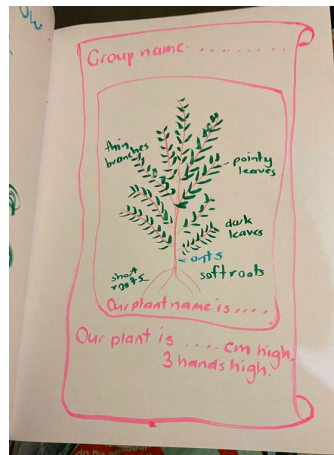 Group name ..........
thin
branches
pointy
leaves
dark
leaves
ants
short
roots
soft roots
Our plant name is ....
Our plant is .... cm high.
3 hands high.